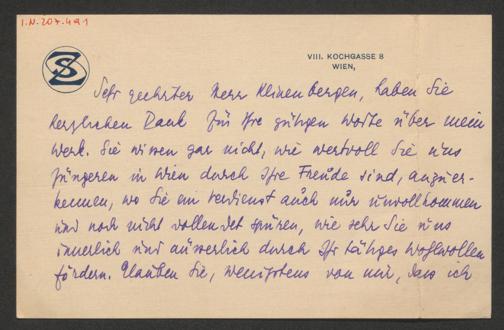 I.N. 207.491
SZ
VIII. KOCHGASSE 8
WIEN,
Sehr geehrter Herr Kleinenbergen, haben Sie
herzlichen Dank für Ihre gütigen Worte über mein
Werk. Sie wissen gar nicht, wie wertvoll Sie uns
Jüngeren in Wien durch Ihre Freude sind, anzuer-
kennen, wo Sie ein Verdienst auch nur unvollkommen
und noch nicht vollendet spüren, wie sehr Sie uns
innerlich und äusserlich durch Ihr tätiges Wohlwollen
fördern. Glauben Sie, wenigstens von mir, dass ich